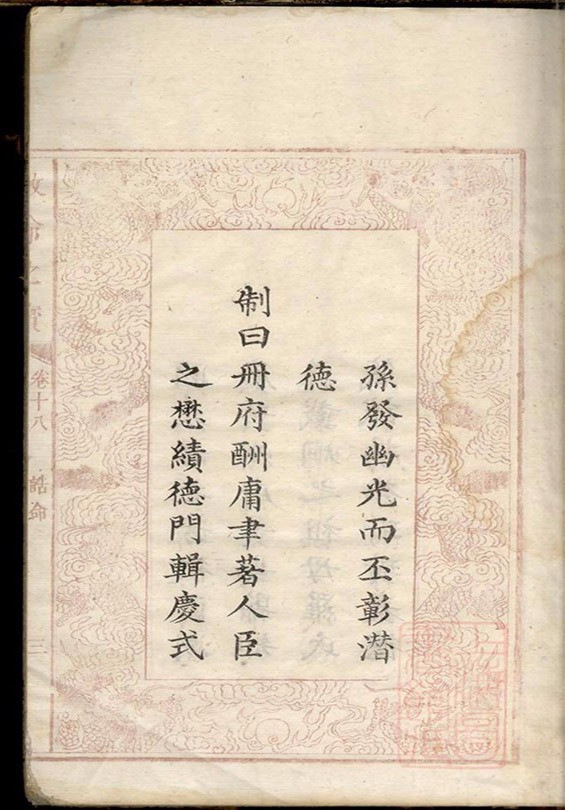 孫發幽光而丕彰潛
德
制曰冊府酬庸聿著人臣
之懋績德門輯慶式
敕命之寶
卷十八
誥命
三